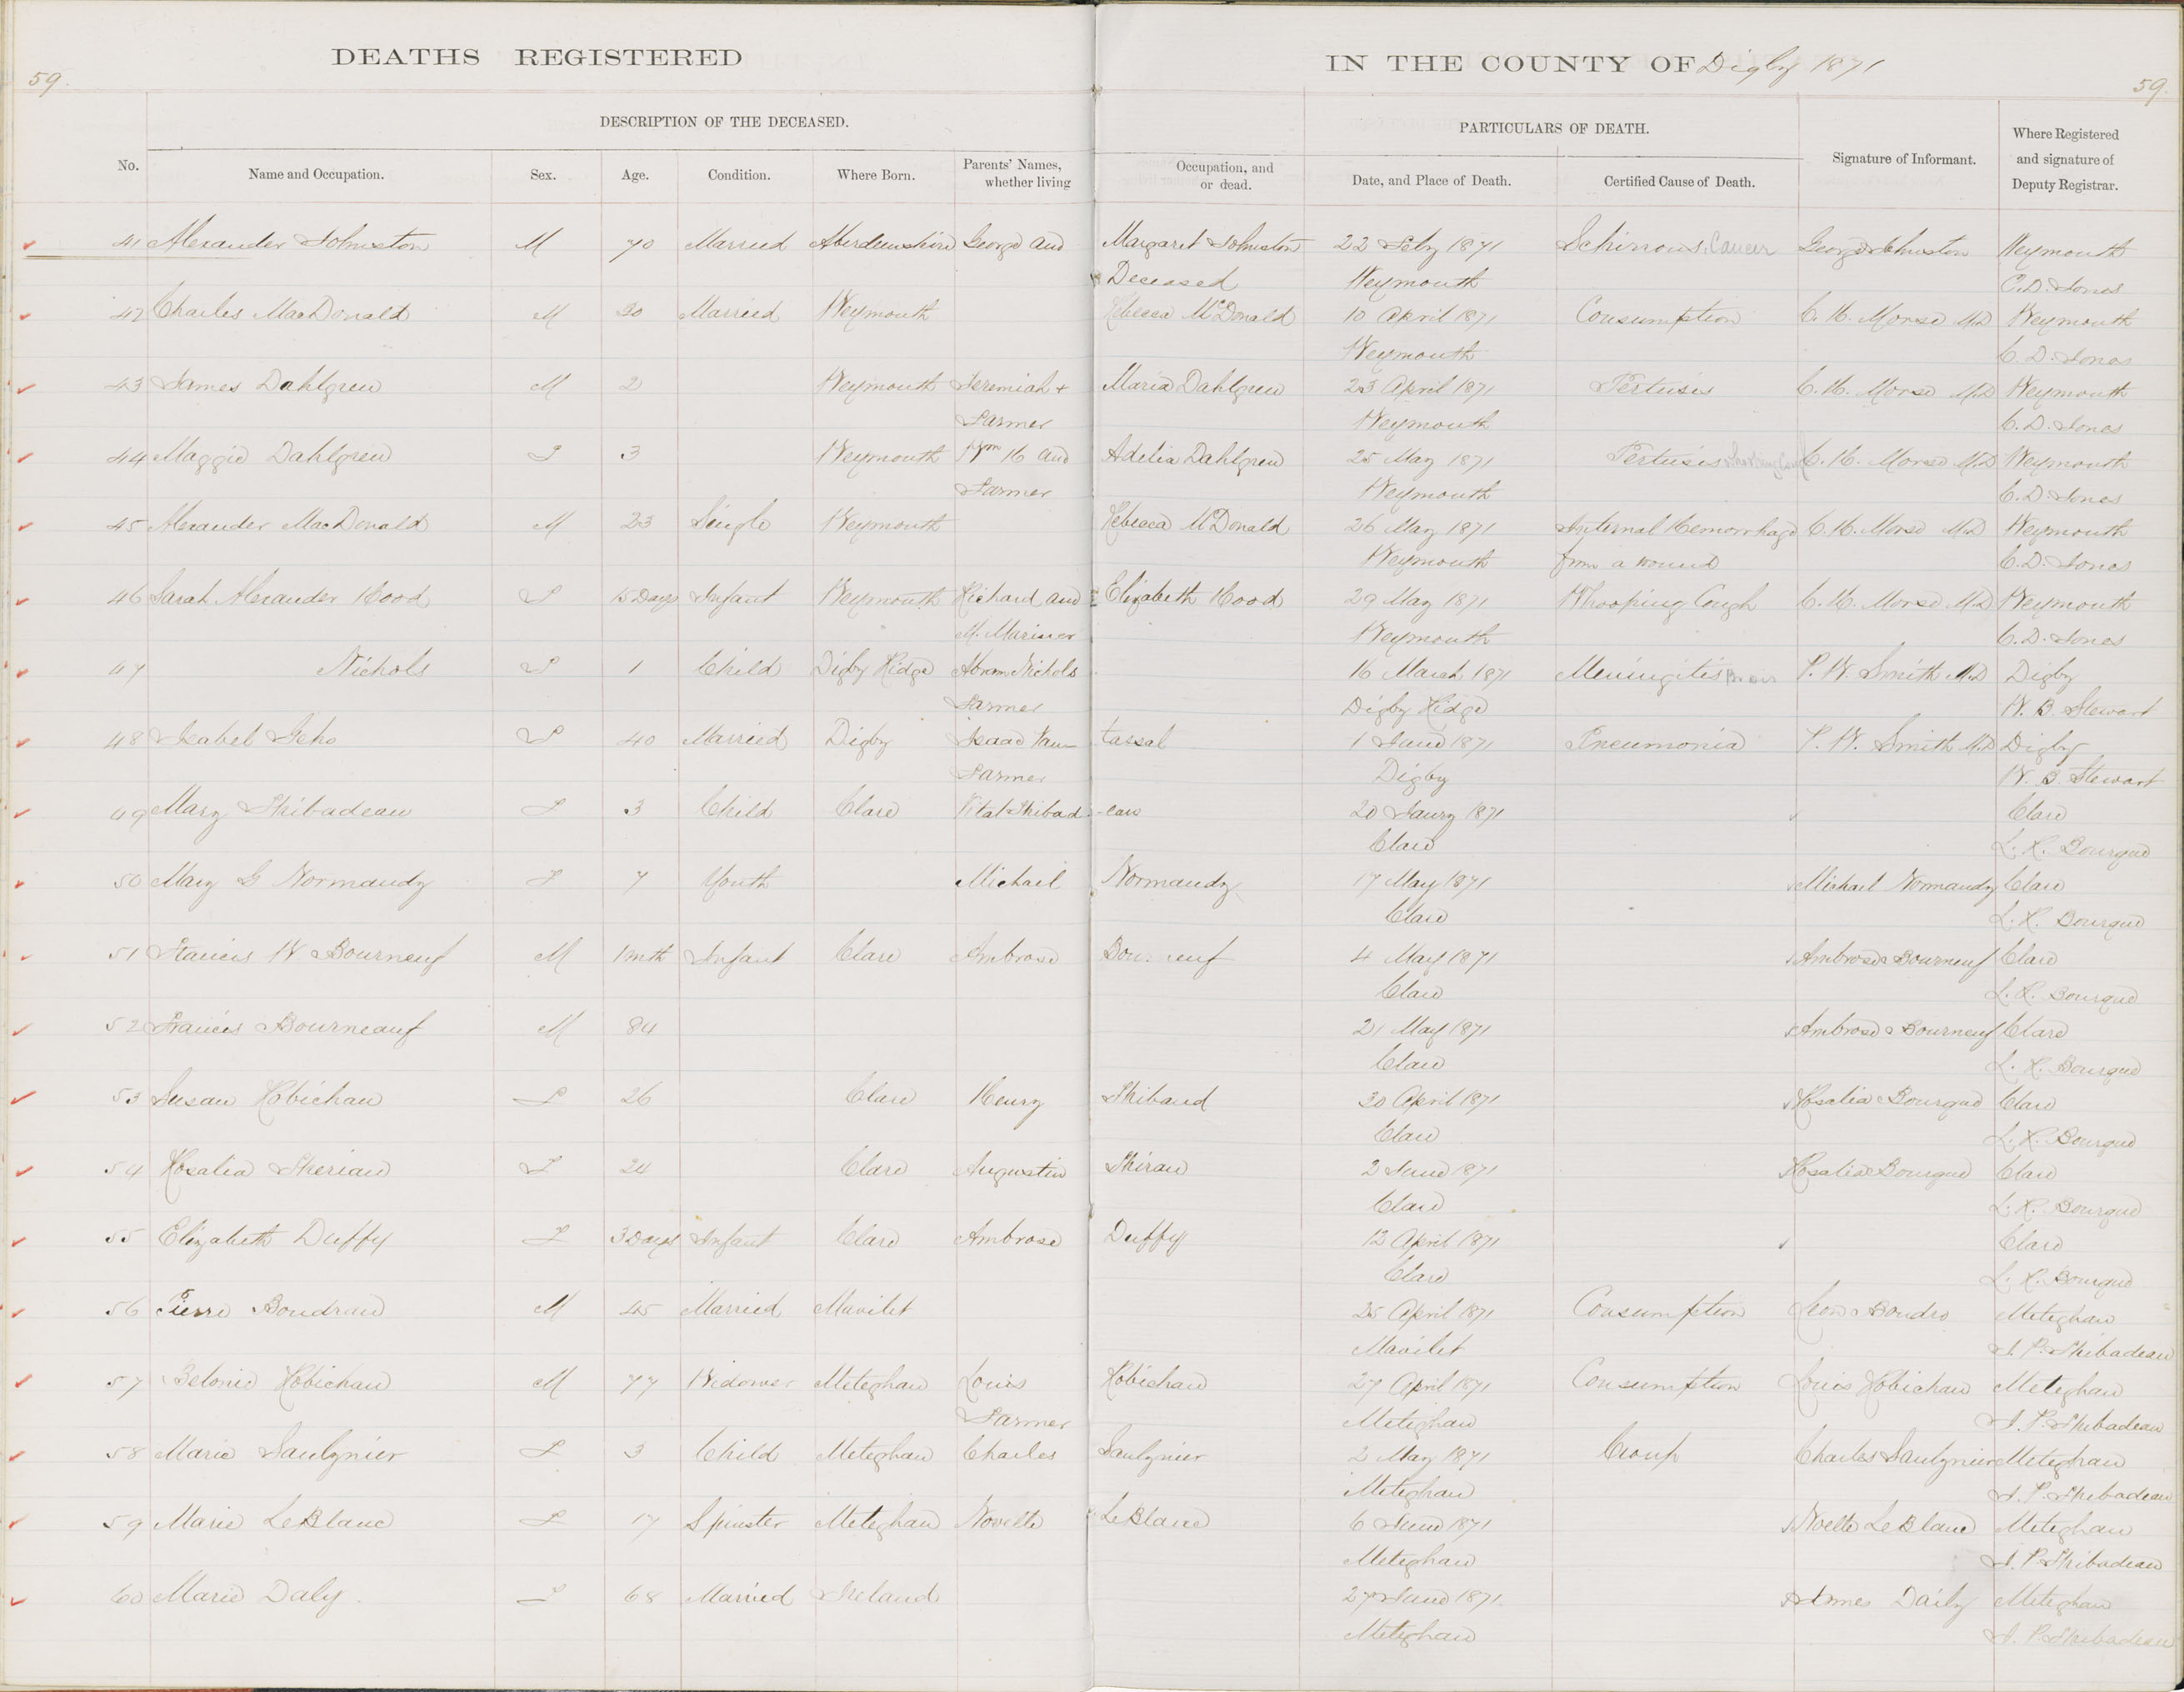 DEATHS REGISTERED IN THE COUNTY OF Digby 1871
59. 59.
DESCRIPTION OF THE DECEASED. PARTICULARS OF DEATH.
No. Name and Occupation. Sex. Age. Condition. Where Born. Parents' Names, whether living Occupation, and or dead. Date, and Place of Death. Certified Cause of Death. Signature of Informant. Where Registered and signature of Deputy Registrar.
41 Alexander Johnston M 70 Married Aberdeenshire George and Margaret Johnston 22 Feby 1871 Schirrous Cancer George Johnston Weymouth
Deceased Weymouth C. D. Jones
42 Charles MacDonald M 30 Married Weymouth Rebecca McDonald 10 April 1871 Consumption C. H. Morse M.D Weymouth
Weymouth C. D. Jones
43 James Dahlgren M 2 Weymouth Jeremiah + Maria Dahlgren 23 April 1871 Pertusis C. H. Morse M.D Weymouth
Farmer Weymouth C. D. Jones
44 Maggie Dahlgren F 3 Weymouth Wm H and Adelia Dahlgren 25 May 1871 Pertusis C. H. Morse M.D Weymouth
Farmer Weymouth C. D. Jones
45 Alexander MacDonald M 23 Single Weymouth Rebecca McDonald 26 May 1871 Internal Hemorrhage C. H. Morse M.D Weymouth
Weymouth from a wound C. D. Jones
46 Sarah Alexander Hood F 15 Days Infant Weymouth Richard and Elizabeth Hood 29 May 1871 Whooping Cough C. H. Morse M.D Weymouth
M. Mariner Weymouth C. D. Jones
47 Nichols F 1 Child Digby Ridge Abram Nichols 16 March 1871 Meningitis P. W. Smith M.D Digby
Farmer Digby Ridge W. B. Stewart
48 Isabel Geho F 40 Married Digby Isaac Van tassal 1 June 1871 Pneumonia P. W. Smith M.D Digby
Farmer Digby W. B. Stewart
49 Mary Thibadeau F 3 Child Clare Vital Thibad -eau 20 Jaury 1871 Clare
Clare L. R. Bourque
50 Mary G Normandy F 7 Youth Michael Normandy 17 May 1871 Michael Normandy Clare
Clare L. R. Bourque
51 Francis W Bourneuf M 1 mth Infant Clare Ambrose Bourneuf 4 May 1871 Ambrose Bourneuf Clare
Clare L. R. Bourque
52 Francis Bourneauf M 84 21 May 1871 Ambrose Bourneuf Clare
Clare L. R. Bourque
53 Susan Robichau F 26 Clare Henry Thibaud 30 April 1871 Rosalie Bourque Clare
Clare L. R. Bourque
54 Rosalia Theriau F 24 Clare Augustin Thirau 2 June 1871 Rosalie Bourque Clare
Clare L. R. Bourque
55 Elizabeth Duffy F 3 Days Infant Clare Ambrose Duffy 12 April 1871 Clare
Clare L. R. Bourque
56 Pierre Boudrau M 45 Married Mavilet 25 April 1871 Consumption Leon Boudro Meteghan
Mavilet J. P. Thibadeau
57 Belonie Robichau M 77 Widower Meteghan Louis Robichau 27 April 1871 Consumption Louis Robichau Meteghan
Farmer Meteghan J. P. Thibadeau
58 Marie Saulgnier F 3 Child Meteghan Charles Saulgnier 2 May 1871 Croup Charles Saulgnier Meteghan
Meteghan J. P. Thibadeau
59 Marie LeBlanc F 17 Spinster Meteghan Novelte LeBlanc 6 June 1871 Noelte LeBlanc Meteghan
Meteghan J. P. Thibadeau
60 Marie Daly F 68 Married Ireland 27 June 1871 Daily Meteghan
Meteghan J. P. Thibadeau